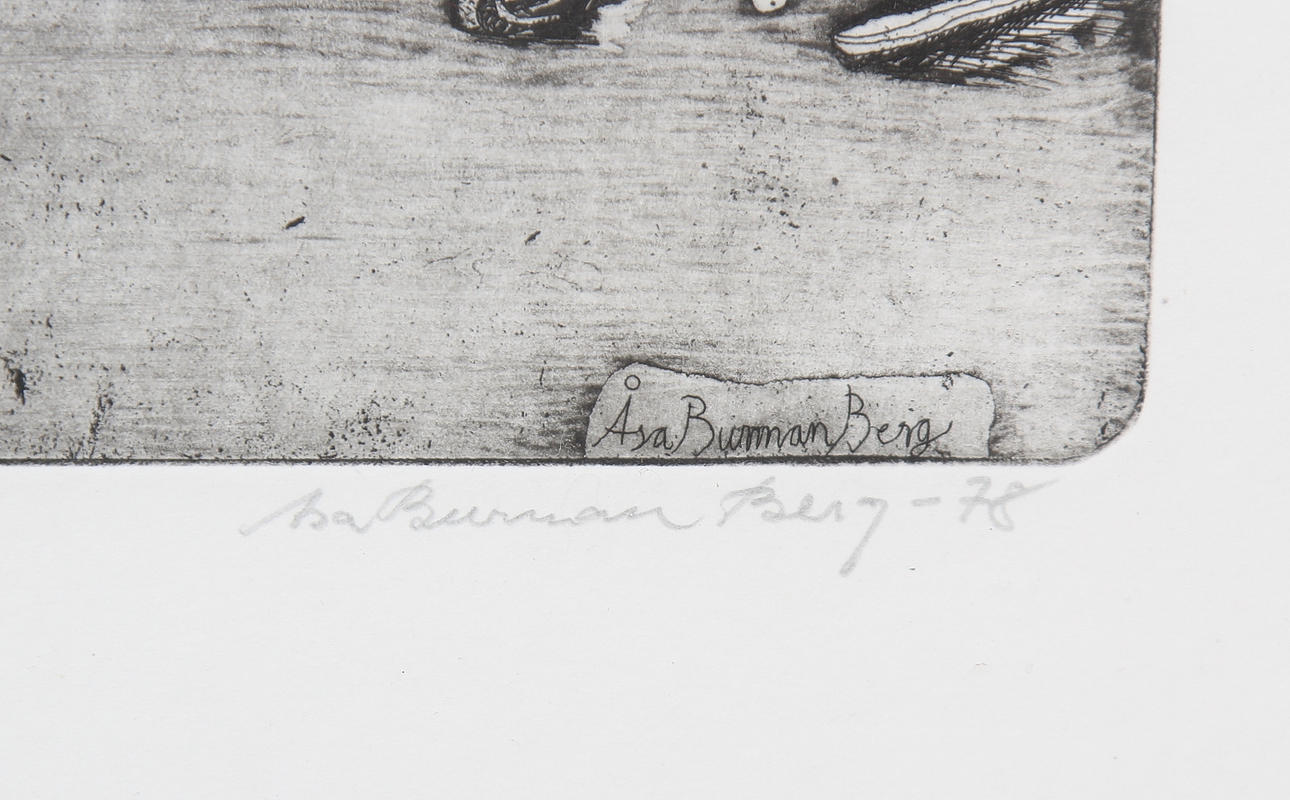 Åsa Burman Berg
Åsa Burman Berg - 78